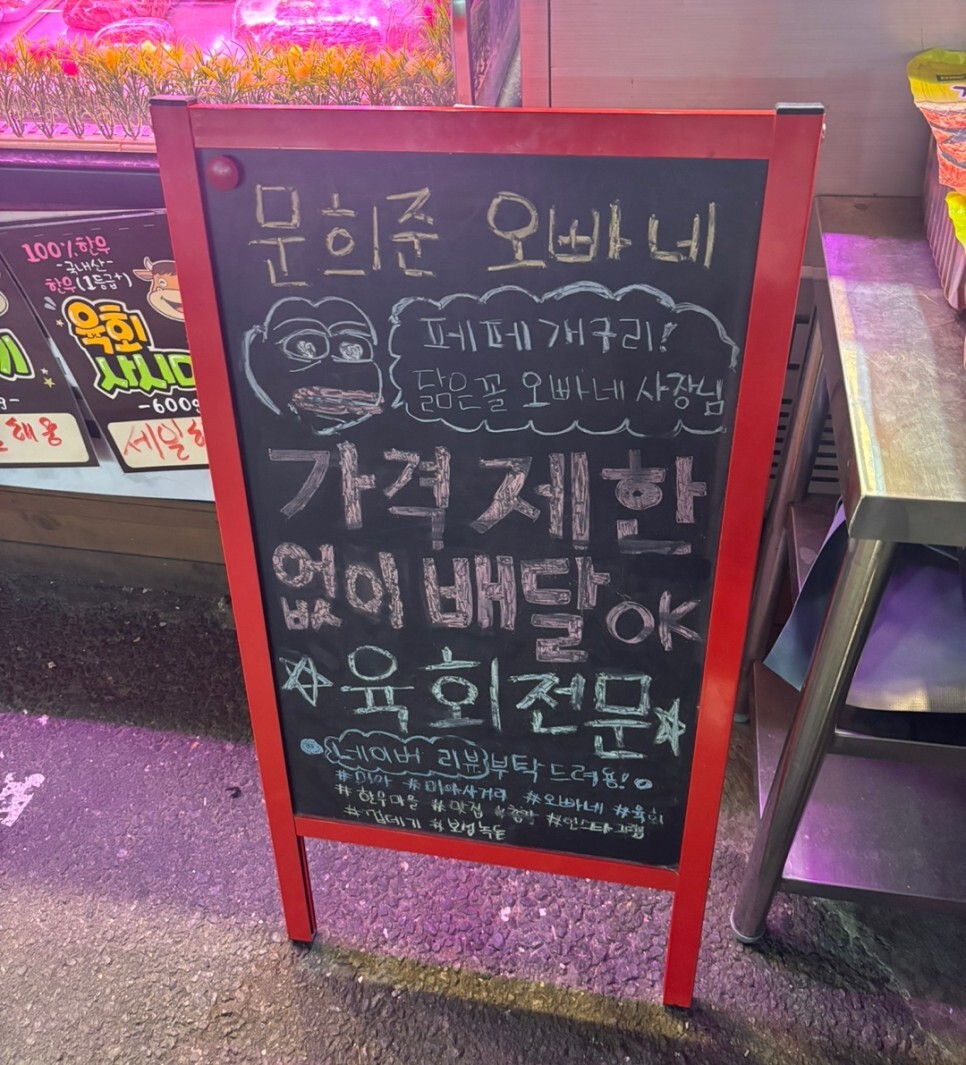 문희준 오빠네
페페개구리!
닮은꼴 오빠네 사장님
가격제한
없이 배달 OK
육회전문
네이버 리뷰 부탁드려용!
#미아 #미아사거리 #오빠네 #육회
#한우마을 #맛집 #인스타그램
100% 한우
-국내산-
한우(1등급+)
육회
사시미
-600g
세일
해용